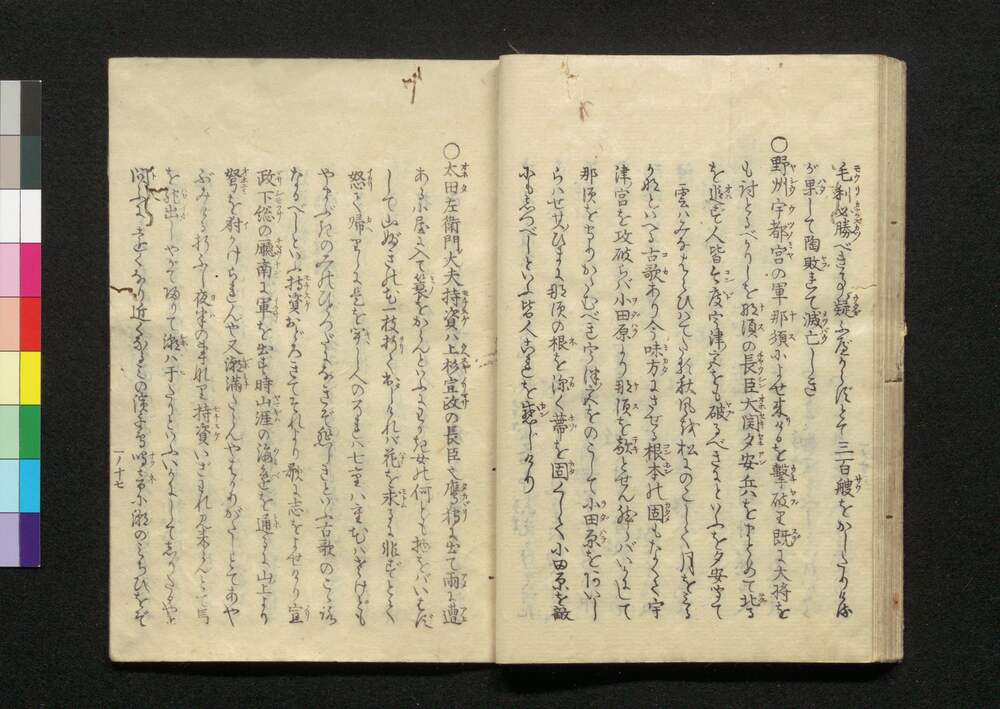 毛利必勝べきを疑ふ処なしとて三百艘をかしたりけるが
が果して陶敗れて滅亡しき
〇野州宇都宮の軍那須によせ来るを撃破り既に大将を
も討とるべかりしを那須の長臣大関夕安兵をまとめて北る
を追はず人皆今度宇津宮をも破るべきにといふを夕安聞て
雲はみなはらひはてたる秋風を松にのこして月をみる
かなといへる古歌あり今味方にさせる根本の固もなくて宇
津宮を攻破らバ小田原より那須を敵とせん然らバいかにして
那須をたもつべき宇津宮をのこして小田原を
らはせ其ひまに那須の根を深く蒂を固くして小田原を敵
にもしつべしといふ皆人これを感じけり
〇太田左衛門大夫持資ハ上杉宣政の長臣也鷹狩に出て雨に遭
ある小屋に入て簑をからんといふにわかき女の何とも物をバいはず
して山吹の花一枝折て出しけれバ花を求るに非ずとて
怒て帰りしに是を聞し人のそれハ七重八重花ハさけども
やまぶきのみのひとつだになきぞ悲しきといふ古歌のこゝろ
なるべしといふ持資おどろきてそれより歌に志をよせけり宣
政下総の庁南に軍を出す時山涯の海辺を通るに山上より
弩を射かけられんや又潮満たらんやはかりがたしとてあや
ぶみける折ふし夜半の事なり持資いざわれ見来らんとて馬
を馳出しやがて帰りて潮ハ干たりといふいかにしてしりたるやと
問ふに遠くなり近くなるみの浜千鳥鳴音に潮のみちひをぞ
一ノ十七